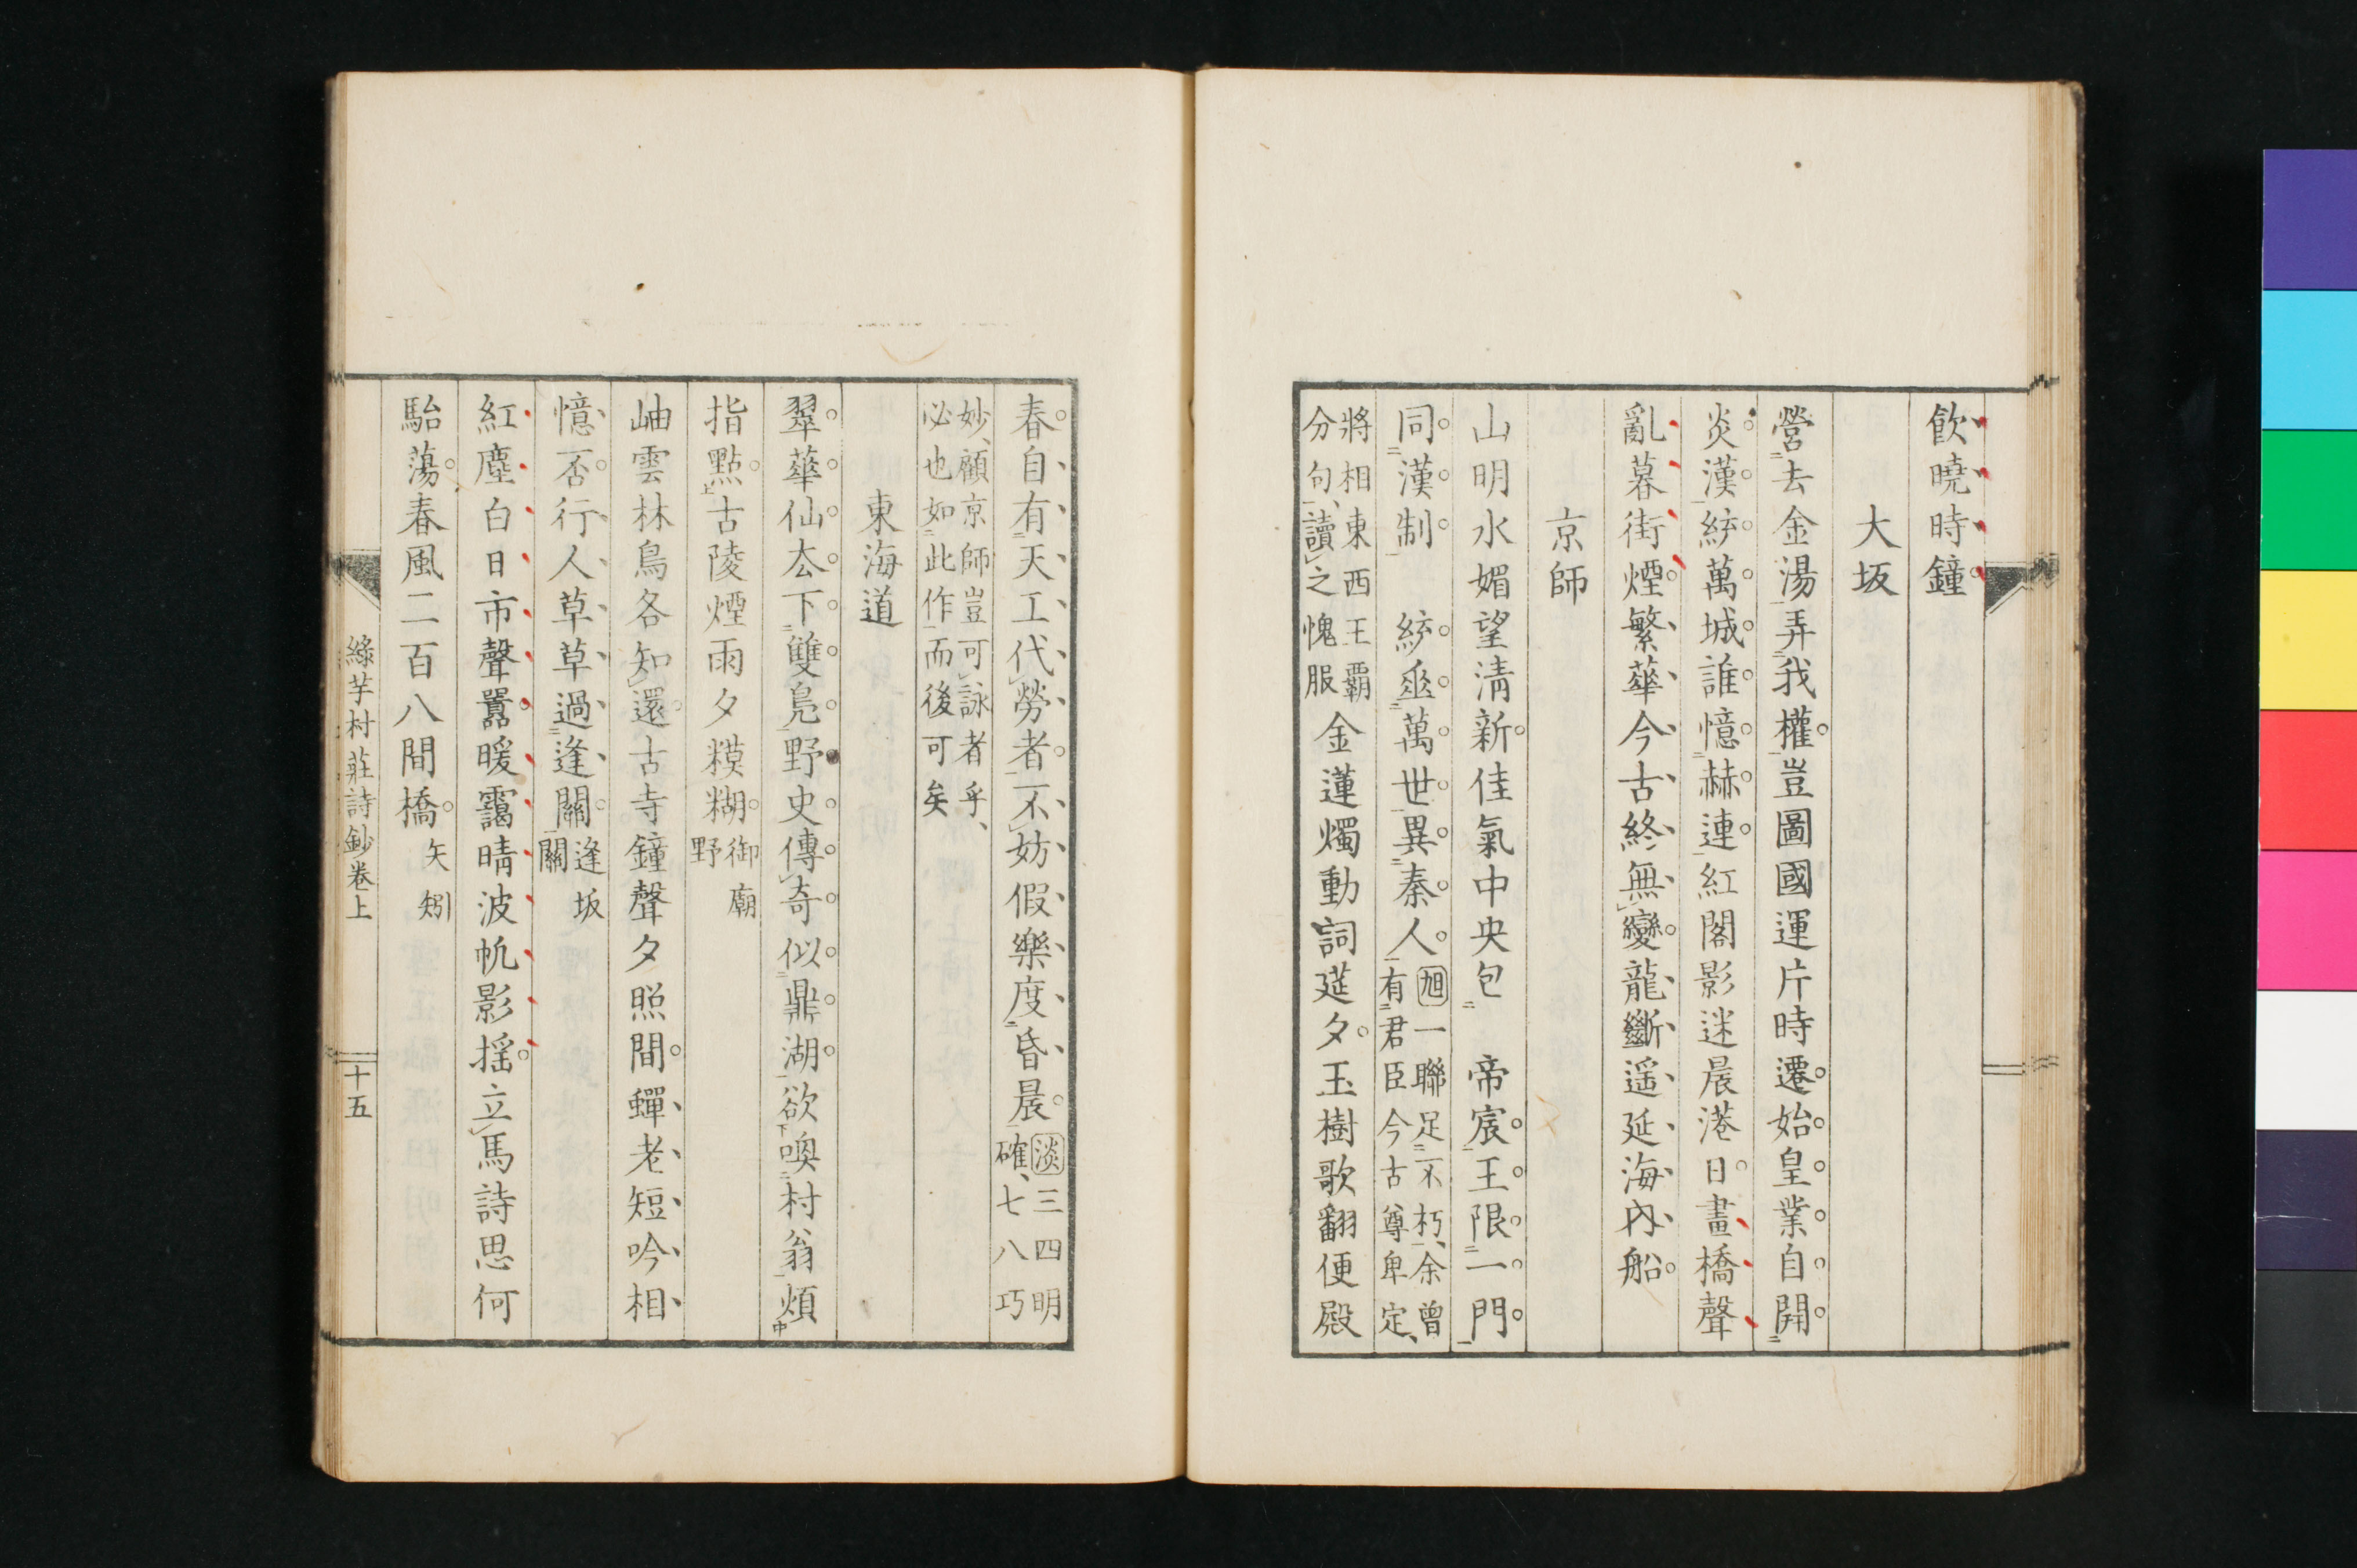 飲曉時鐘
大坂
營去金湯弄我權豈圖國運片時遷始皇業自開
炎漢統萬城誰憶赫連紅閣影迷晨港日畫橋聲
亂暮街煙繁華今古終無變龍斷遥延海內船
京師
山明水媚望淸新佳氣中央包 帝宸王限一門
同漢制 統垂萬世異秦人
旭一聯足不朽余曾
有君臣今古尊卑定
將相東西王覇
分句讀之愧服
金蓮燭動詞莚夕玉樹歌翻便殿
春自有天工代勞者不妨假樂度昏晨
淡三四明
確七八巧
妙顧京師豈可詠者乎
必也如此作而後可矣
東海道
翠華仙去下雙鳧野史傳奇似鼎湖欲喚村翁煩
指點古陵煙雨夕糢糊
御廟
野
岫雲林鳥各知還古寺鐘聲夕照間蟬老短吟相
憶否行人草草過逢關
逢坂
關
紅塵白日市聲囂暖靄晴波帆影搖立馬詩思何
駘蕩春風二百八間橋
矢矧
綠芋村莊詩鈔卷上
十五